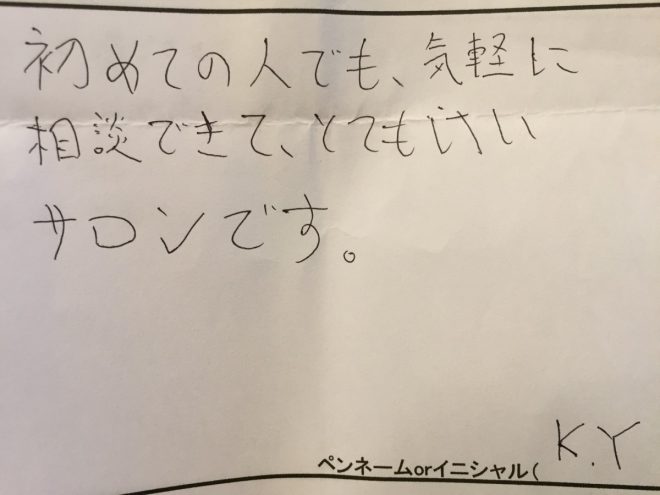 初めての人でも、気軽に
相談できて、とても
サロンです。
K.Y
ペンネームorイニシャル(